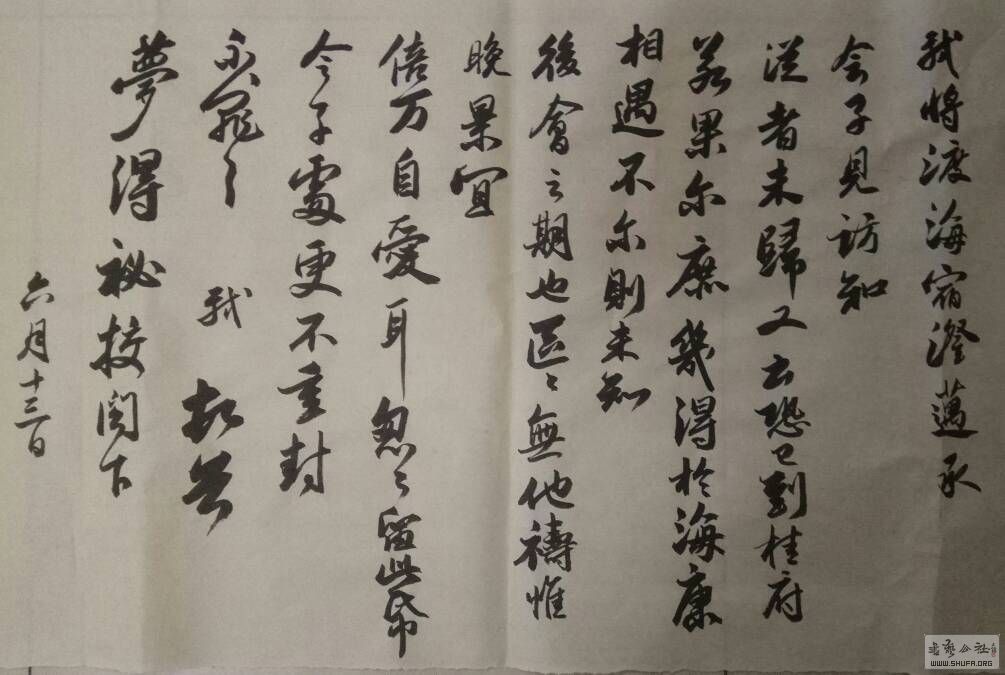 軾將渡海宿澄邁承
令子見訪知
從者未歸又云恐已到桂府
若果尔庶幾得於海康
相遇不尔則未知
後會之期也區〻無他禱惟
晚景宜
倍万自愛耳怱〻留此帋
令子處更不重封
不罪〻 軾 頓首
夢得祕挍閣下
六月十三日
書藝公社
WWW.SHUFA.ORG